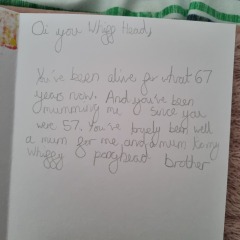 Oi you Whiff Head,
You've been alive for what 67
years now. And you've been
mumming me since you
were 57. You've been well
a mum for me and a mum
Whiffy poophead brother